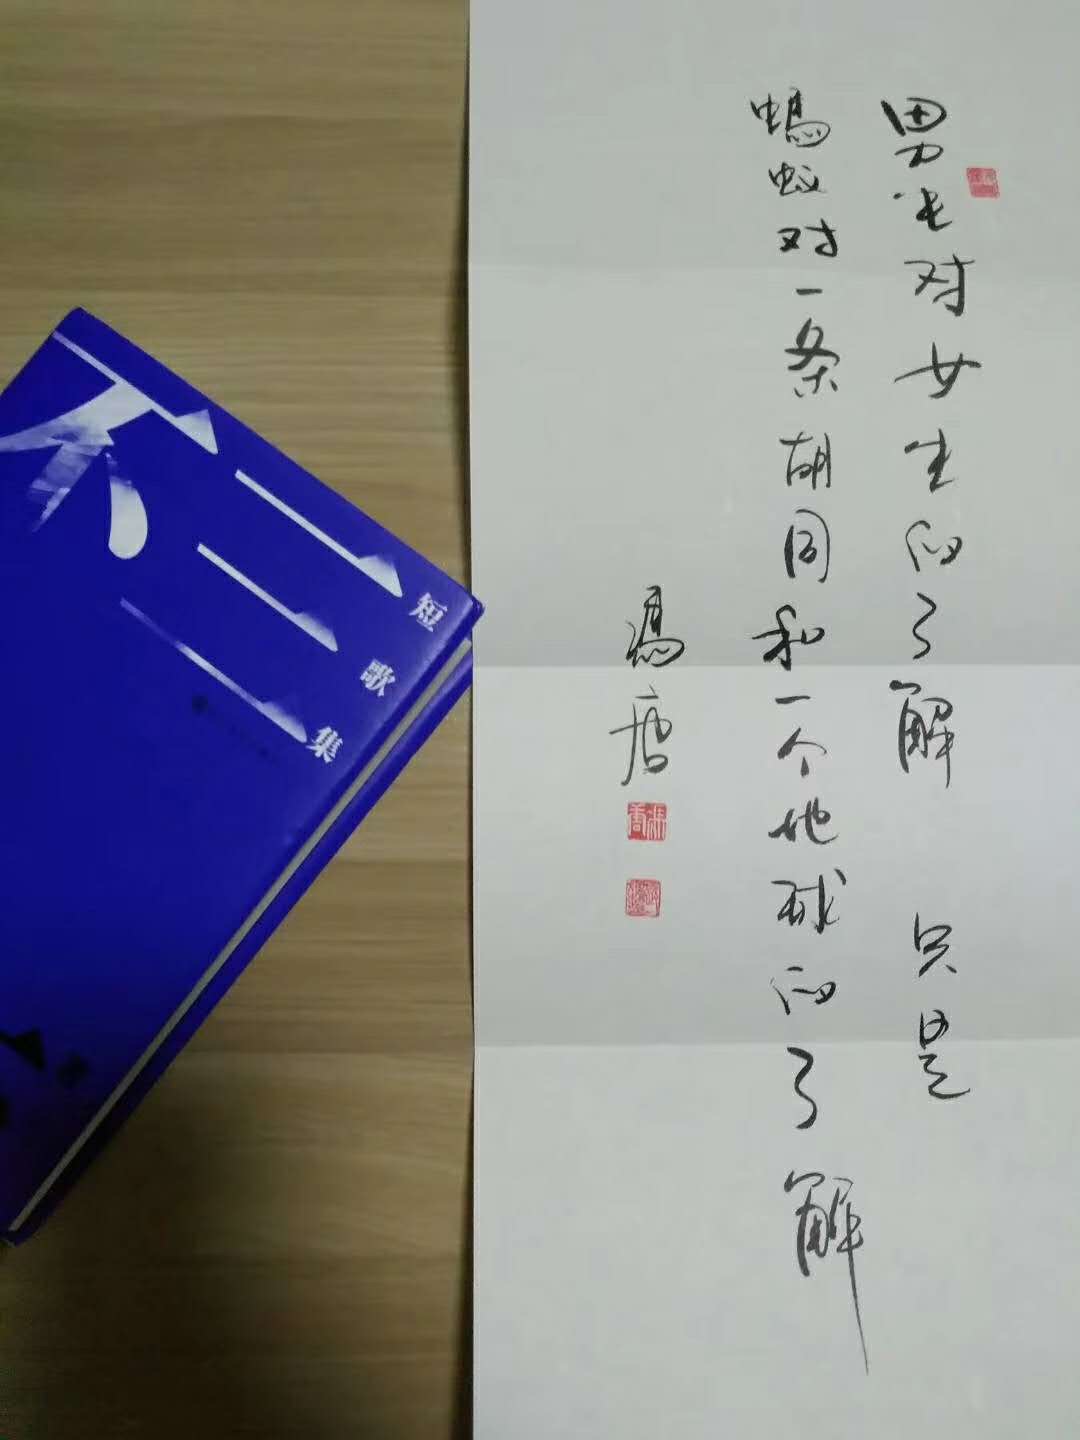 男生对女生的了解 只是
螞蚁对一条胡同和一个地球的了解
馮唐
不三
短歌集